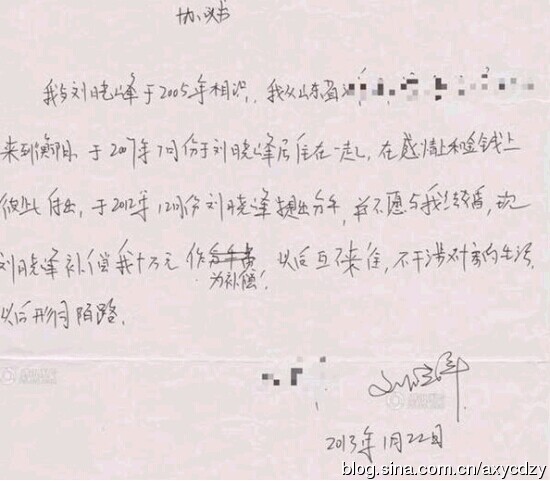 协议书
我与刘晓峰于2005年相识,我从山东省
来到衡阳.于2007年7月份于刘晓峰居住在一起,在感情上和金钱上
彼此付出,于2012年12月份刘晓峰提出分手,并不愿与我结婚,现
刘晓峰补偿我十万元作分手费为补偿,以后互不来往,不干涉对方的生活.
以后形同陌路.
刘晓峰
2013年1月22日
blog.sina.com.cn/axycdzy